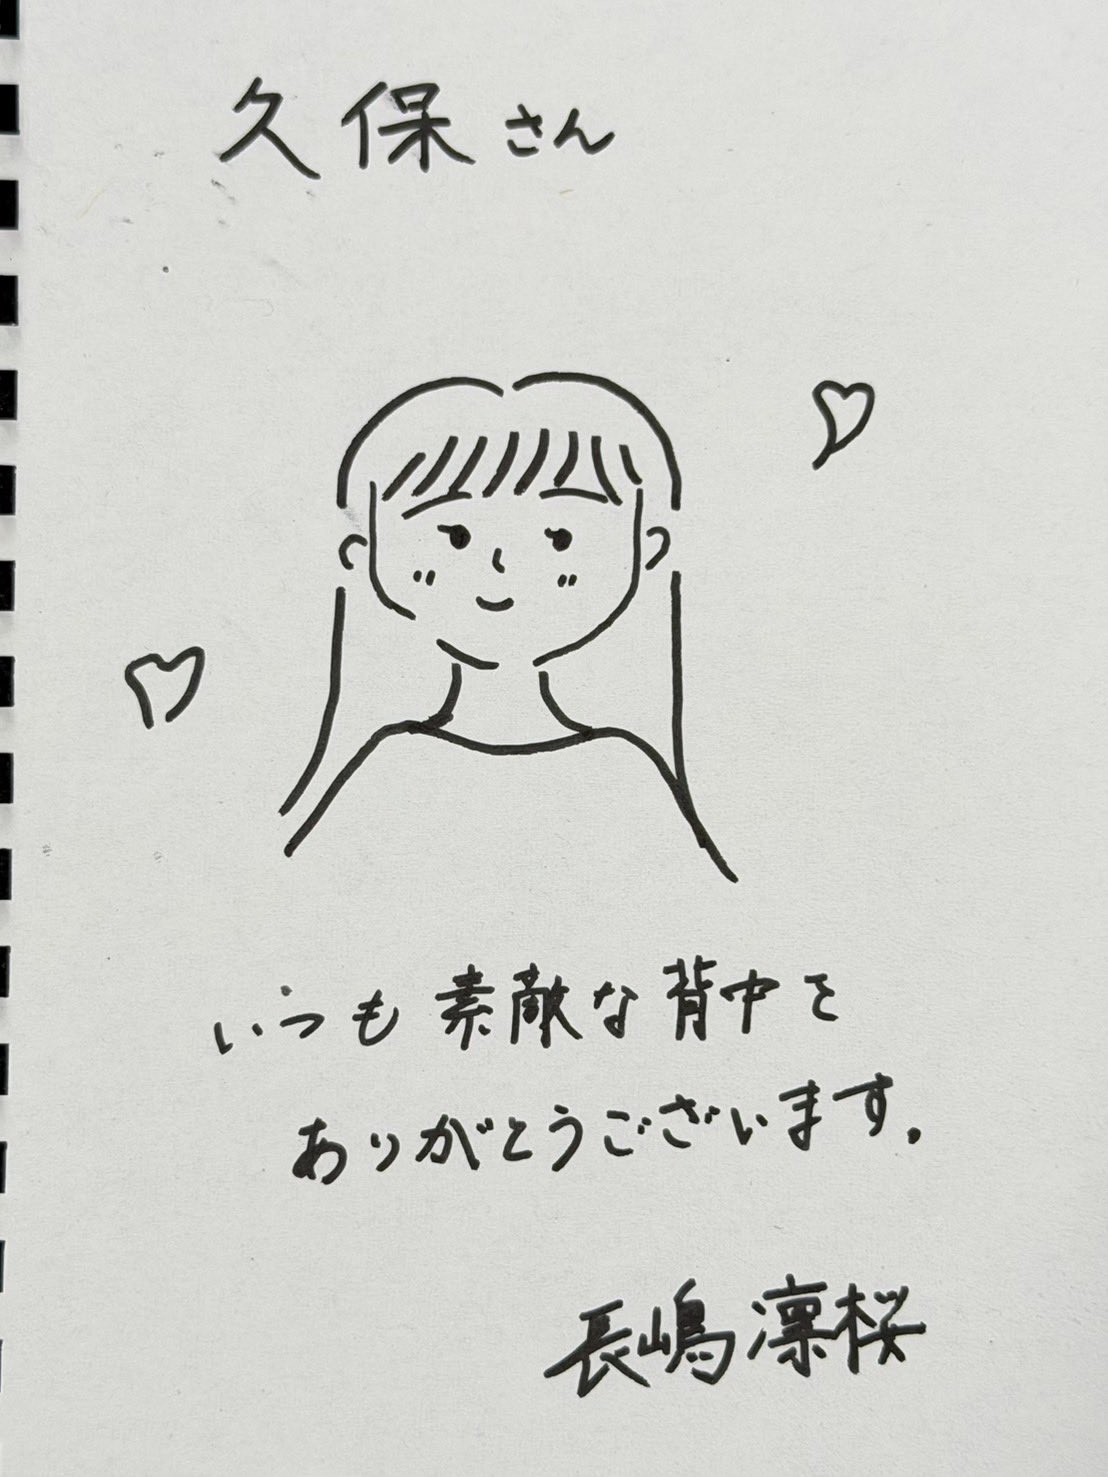 久保さん
いつも素敵な背中を
ありがとうございます。
長嶋凛桜